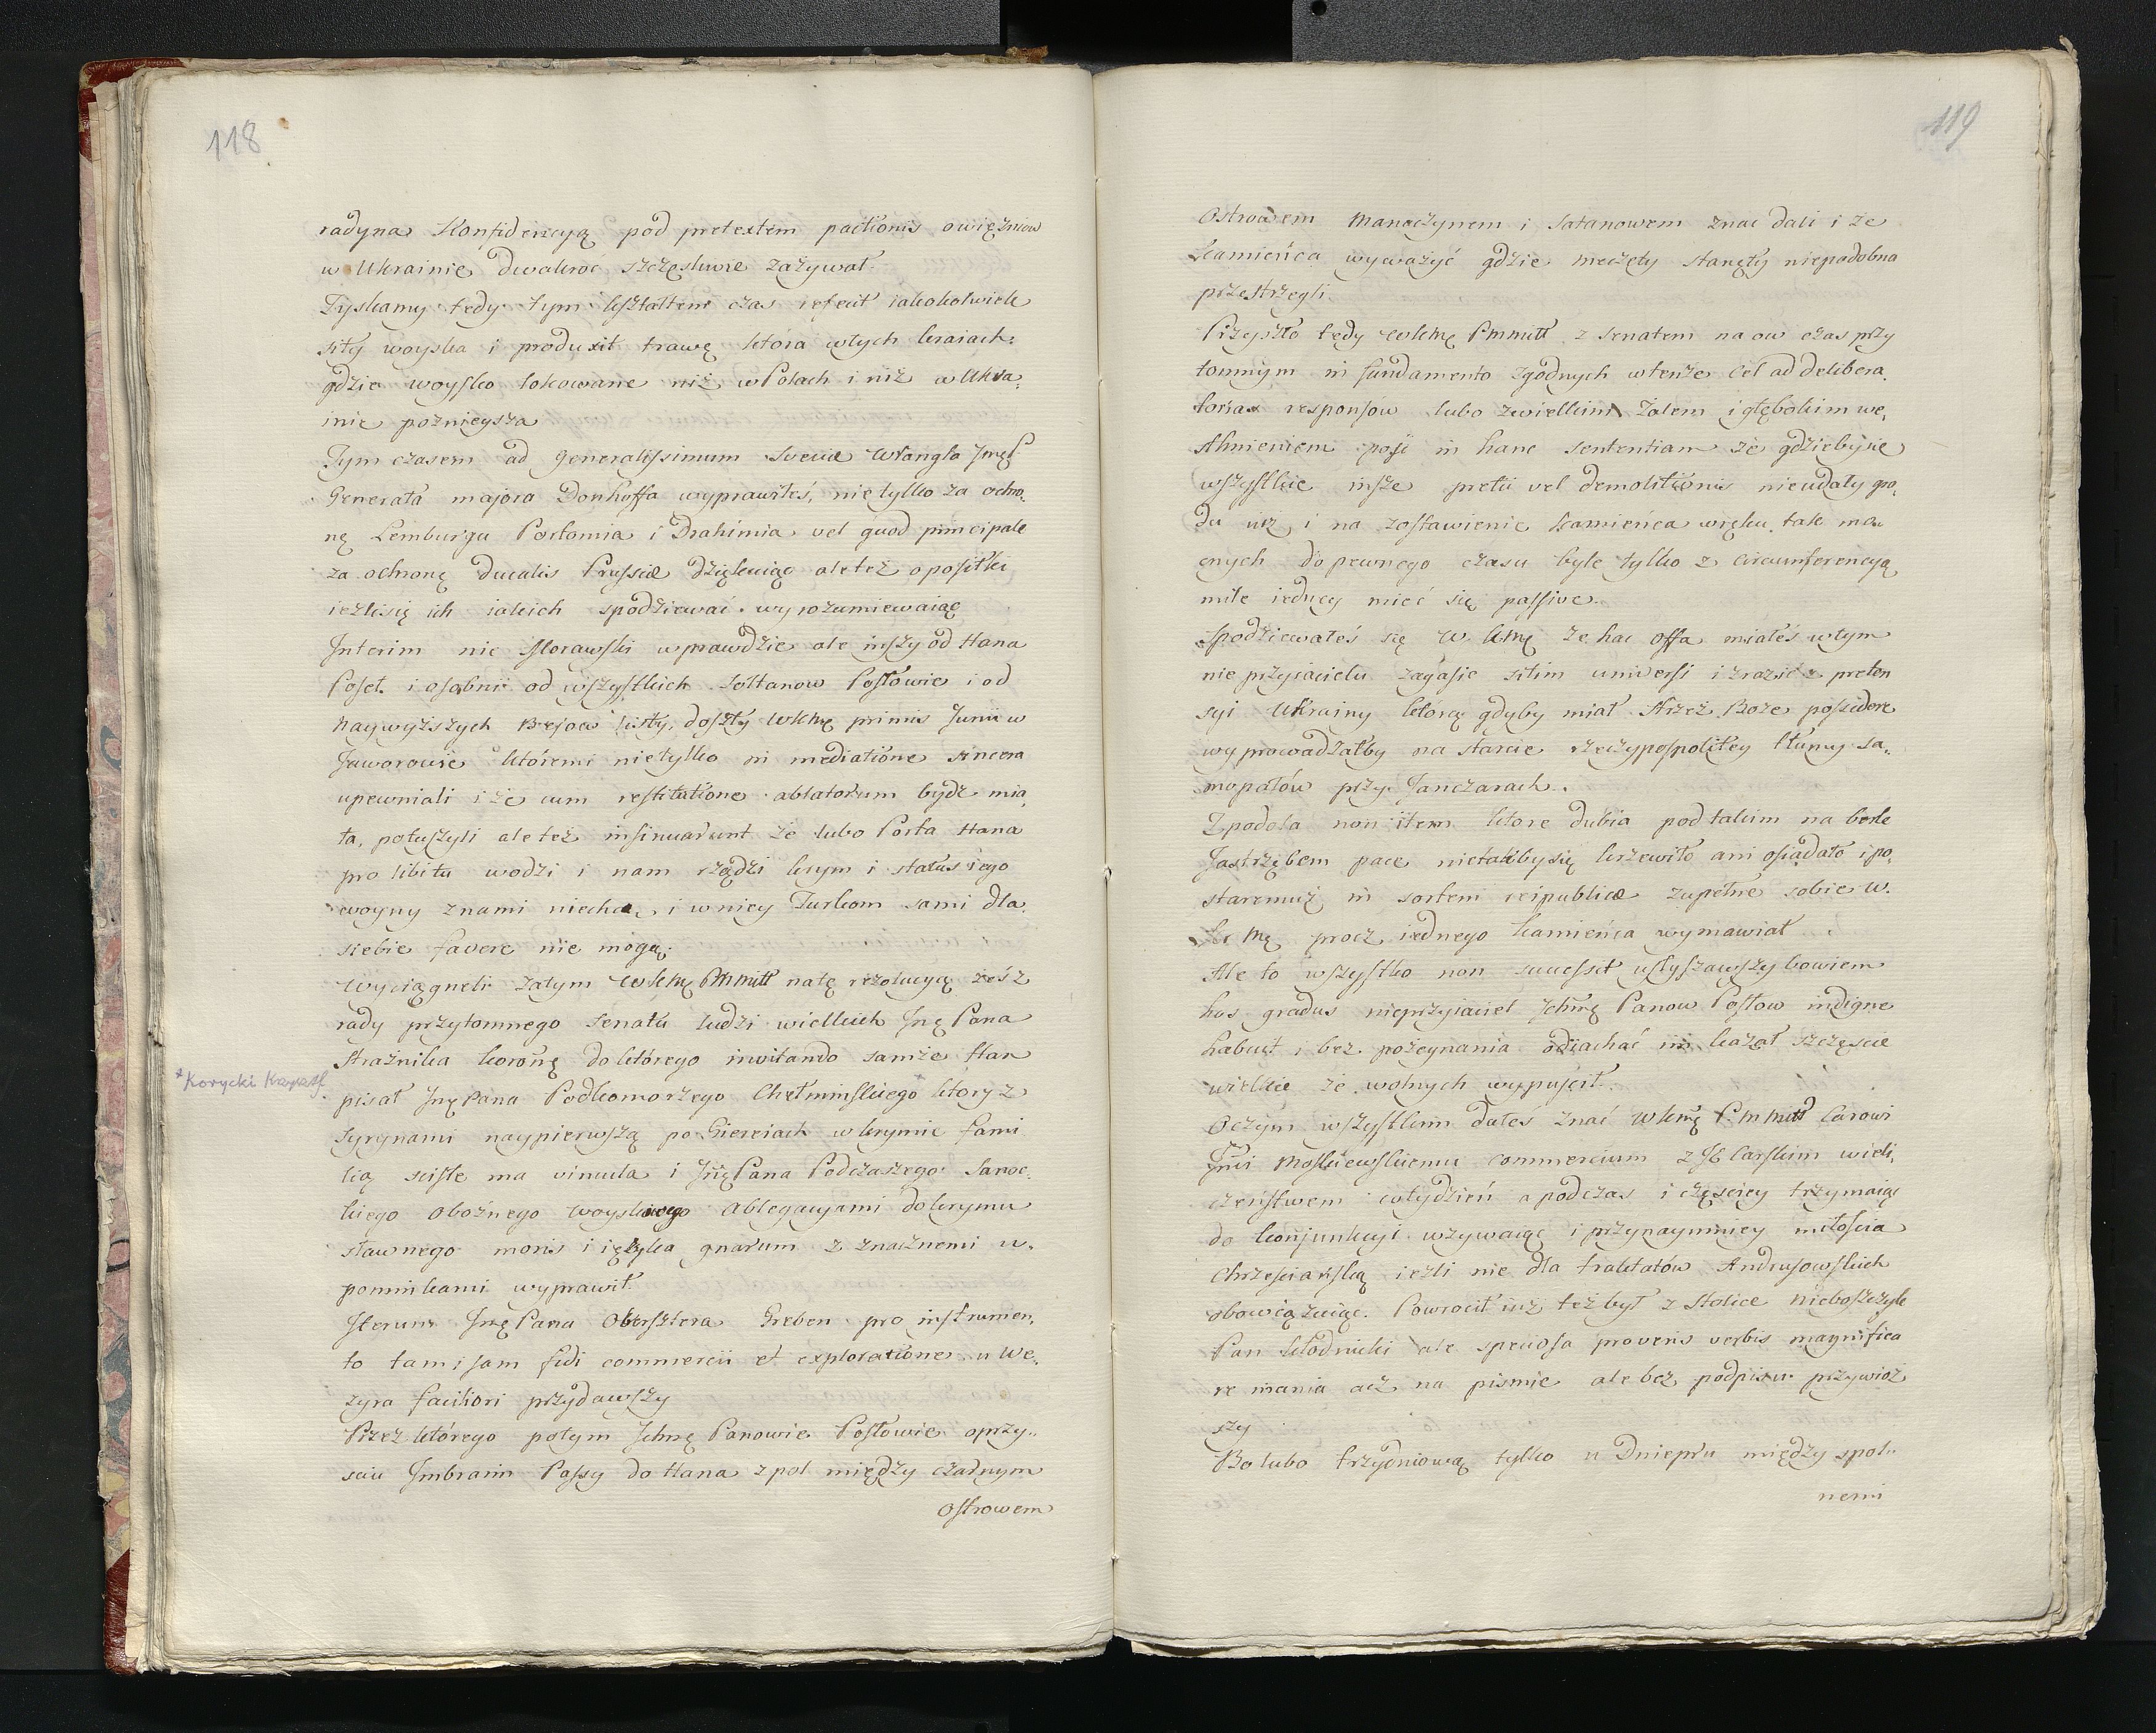 118
radyna Konfidencyą pod pretextem pactionis owięzniow
w Ukrainie dwakroć szczęsliwie zażywał.
Zyskamy tedy tym kształtem czas refecit iakokolwiek
siły woyska i produxit trawę która wtych kraiach
gdzie woysko lokowane niż w Polach i niż w Ukra,
inie poznieysza
Tym czasem ad Generalissimum Sveciæ Wrangla Jmę P
Generała majora Donhoffa wyprawiłeś, nie tylko za ochro,
nę Lemburgu Bortomia i Drahimia vel quod principale
za ochronę Ducalis Prussiæ dziękuiąc ale też oposiłki
ieżli się ich iakich spodziewać wyrozumiewaiąc
Interim nie Morawski wprawdzie ale inszy od Hana
Poseł i osobnii od wszystkich Sołtanow Posłowie i od
naywyższych Bejow listy doszły WKMę primis Junii w
Jaworowie któremi nie tylko in mediatione sincera
upewniali i że cum restitutione ablatorum bydź mia,
ła, potuszyli ale też insinuarunt że lubo Porta Hana
pro libitu wodzi i nam rządzi krym i status iego
woyny znami niechcą, i wniey Turkom sami dla
siebie favere nie mogą.
Wyciągneli zatym WKMę PMMiłł natę rezolucyą żeś z
rady przytomnego Senatu ludzi wielkich Jmę Pana
Strażnika koronę do którego invitando samże Han
*Korycki
pisał Jmę Pana Podkomorzego Chełminskiego który z
Syrynami naypierwszą po Giereiach w krymie fami
lią sciste ma vincula i Jmę Pana Podczaszego Sanoc,
kiego oboźnego woyskowego ablegacyami do krymu
sławnego moris i ięzyka gnarum z znacznemi u,
pominkami wyprawił.
Iterum Jmę Pana Obersztera Greben pro instrumen,
to tam i sam fidi commercii et exploratione u We,
zyra faciliori przydawszy
Przez którego potym Jchmę Panowie Posłowie oprzy,,
sciu Jmbraim Passy do Hana z pol między Czarnym
Ostrowem
119
Ostrowem Manaczynem i Satanowem znać dali i że
kamieńca wyważyć gdzie meczety stanęły niepodobna
przestrzegli.
Przyszło tedy WKMę PMMiłł z senatem na ow czas przy
tomnym in fundamento zgodnych wtenże cel ad delibera,
torias responsow lubo zwielkim żalem i głębokim we,
stchnieniem poyść in hanc sententiam że gdzieby się
wszystkie insze pretii vel demolitionis nieudały spo,
du uż, i na zostawienie kamieńca wręku tak mo,
cnych do pewnego czasu byle tylko z circumferencyą
mile iedney mieć się passive.
Spodziewałeś się W KMę że hac offa miałeś wtym
nieprzyiacielu zagasić sitim universi i zrazić z preten
syi Ukrainy którą gdyby miał strzeż Boże possidere
wyprowadzałby na starcie rzeczypospolitey tłumy sa,
mopałów przy Janczarach.
Z podola non item ktore dubia pod takim na berle
Jastrzębem pace nietakby się krzewiło ani osiadało i po,
staremuż in sortem reipublicæ zupełne sobie W.
K. Mę procz iednego kamieńca wymawiał
Ale to wszystko non successit usłyszawszy bowiem
hos gradus nieprzyiaciel Jchmę Panow Posłow indigne
habuit i bez pożegnania odiachać im kazał szczęscie
wielkie że wolnych wypuścił.
Oczym wszystkim dałeś znać WKMę P. M Miłł Carowi
Jmi Moskiewskiemu commercium z J C Carskim wieli,
czeństwem cotydzień a podczas i częsciey trzymaiąc
do konjunkcyi wzywaiąc i przynaymniey miłoscia
chrześciańską ieżli nie dla traktatów Andrusowskich
obowiązuiąc. Powrocił iuż też był z Stolice nieboszczyk
Pan Kłodnicki ale speciosa proveris verbis magnifica
re inania acz na pismie ale bez podpisu przywioz
szy
Bo lubo trzydniową tylko u Dniepru między spol,,
nemi